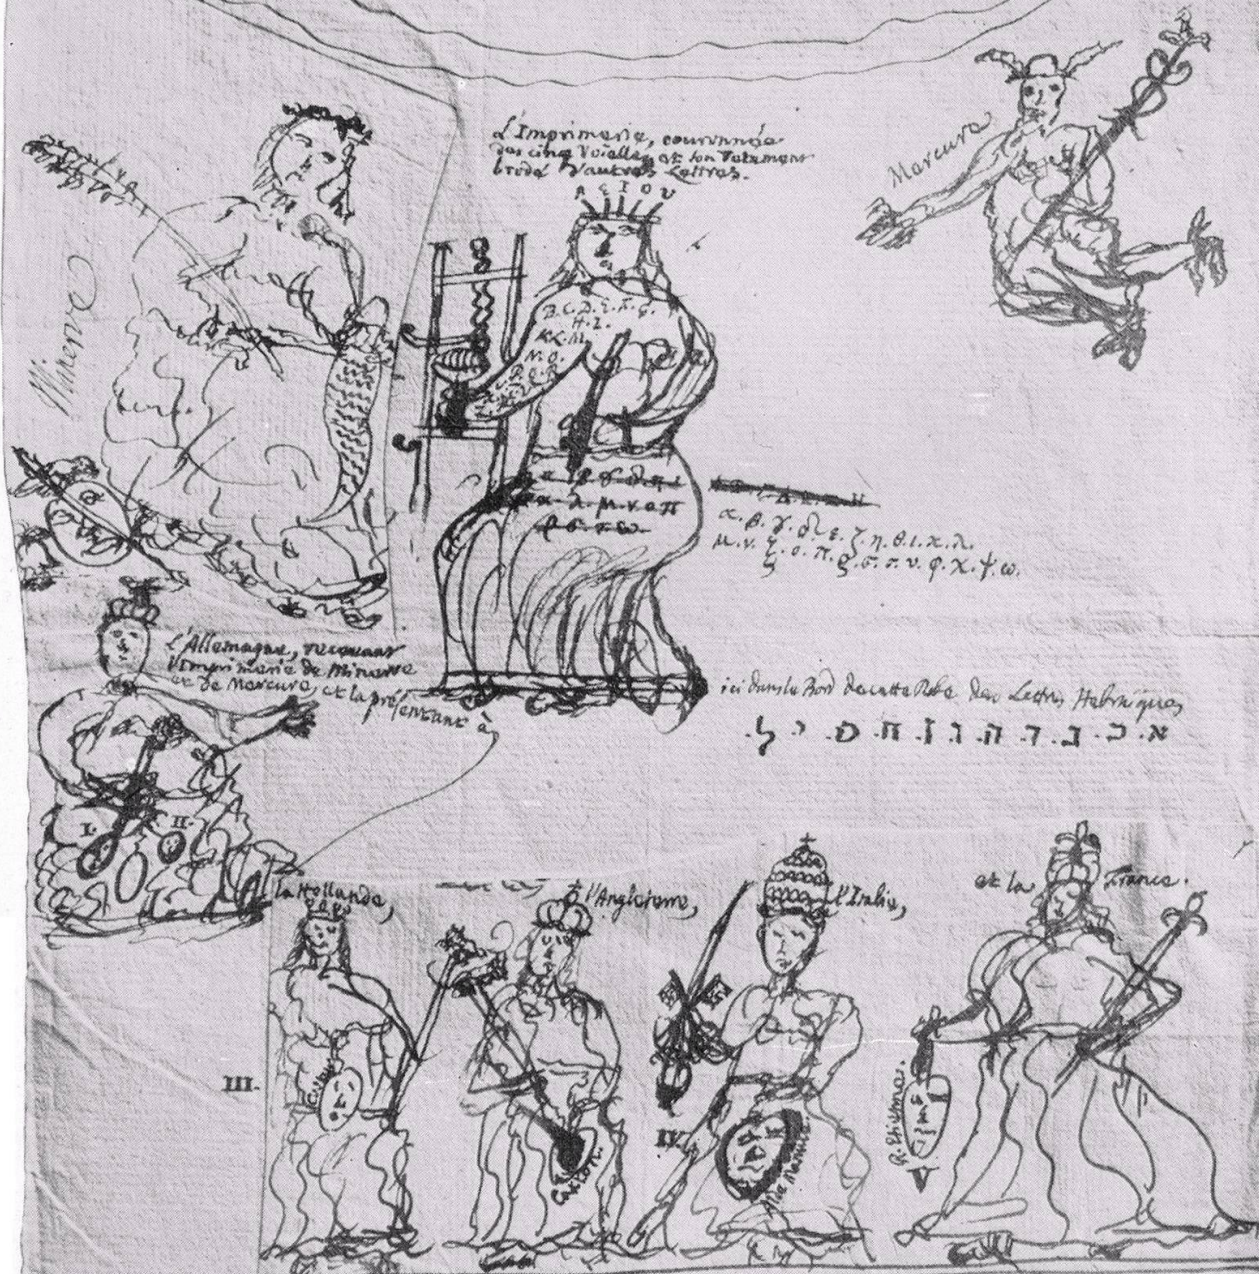 L'Imprimerie, couronnée
des cinq Voielles et son Vetement
brodé d'autres Lettres.
A E I O U
Mercure
Minerve
B. C. D. E. F. G.
H. I.
K. L. M.
N. O.
P. Q. R.
α. β. γ. δ. ε. ζ. η. θ. ι. κ. λ.
μ. ν. ξ. ο. π. ρ. σ. τ. υ. φ. χ. ψ. ω.
L'Allemagne, recevant
l'imprimerie de Minerve
et de Mercure, et la présentant à
ici dans le Bord de cette Robe des Lettres Hebraïques
א . כ . ב . ד . ה . ג . ן . ח . פ . י . ל .
I. II.
la Hollande,
l'Angleterre,
l'Italie,
et la France.
III.
Caxton.
IV.
Alde Manuce
R. Etienne.
V